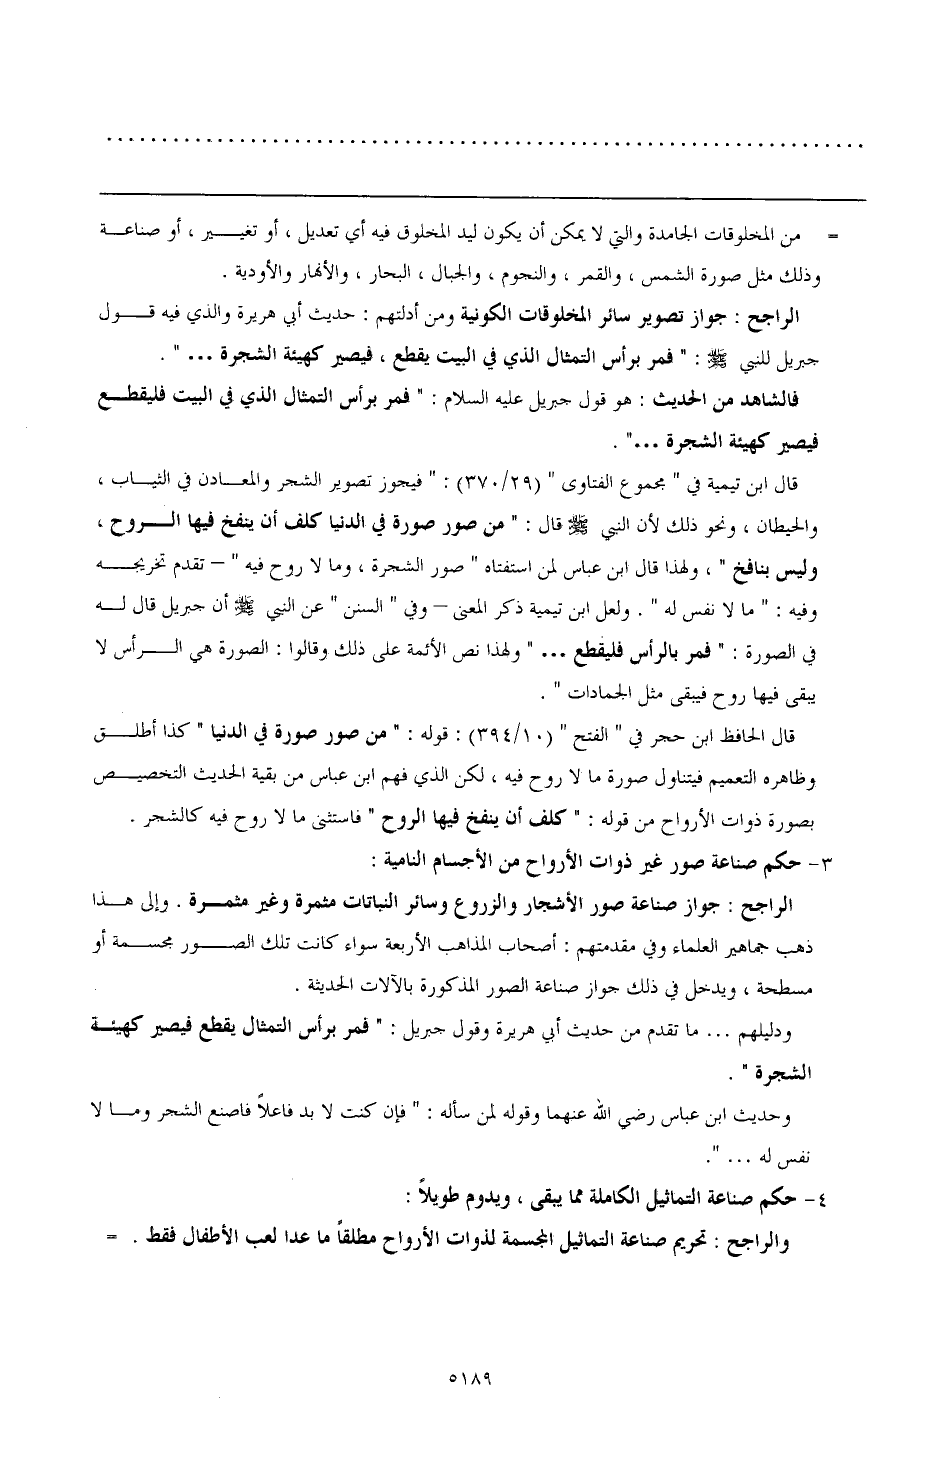 = من المخلوقات الجامدة والتي لا يمكن أن يكون ليد المخلوق فيه أي تعديل ، أو تغيير ، أو صناعة
وذلك مثل صورة الشمس ، والقمر ، والنجوم ، والجبال ، البحار ، والأنهار والأودية .
الراجح : جواز تصوير سائر المخلوقات الكونية ومن أدلتهم : حديث أبي هريرة والذي فيه قول
جبريل للنبي ﷺ : " فمر برأس التمثال الذي في البيت يقطع ، فيصير كهيئة الشجرة ... " .
فالشاهد من الحديث : هو قول جبريل عليه السلام : " فمر برأس التمثال الذي في البيت فليقطع
فيصير كهيئة الشجرة ..." .
قال ابن تيمية في " مجموع الفتاوى " (٣٧٠/٢٩) : " فيجوز تصوير الشجر والمعادن في الثياب ،
والحيطان ، ونحو ذلك لأن النبي ﷺ قال : " من صور صورة في الدنيا كلف أن ينفخ فيها الروح ،
وليس بنافخ " ، ولهذا قال ابن عباس لمن استفتاه " صور الشجرة ، وما لا روح فيه " – تقدم تخريجه
وفيه : " ما لا نفس له " . ولعل ابن تيمية ذكر المعنى – وفي " السنن " عن النبي ﷺ أن جبريل قال له
في الصورة : " فمر بالرأس فليقطع ... " ولهذا نص الأئمة على ذلك وقالوا : الصورة هي الرأس لا
يبقى فيها روح فيبقى مثل الجمادات " .
قال الحافظ ابن حجر في " الفتح " (٣٩٤/١٠) : قوله : " من صور صورة في الدنيا " كذا أطلق
وظاهره التعميم فيتناول صورة ما لا روح فيه ، لكن الذي فهم ابن عباس من بقية الحديث التخصيص
بصورة ذوات الأرواح من قوله : " كلف أن ينفخ فيها الروح " فاستثنى ما لا روح فيه كالشجر .
٣- حكم صناعة صور غير ذوات الأرواح من الأجسام النامية :
الراجح : جواز صناعة صور الأشجار والزروع وسائر النباتات مثمرة وغير مثمرة . وإلى هذا
ذهب جماهير العلماء وفي مقدمتهم : أصحاب المذاهب الأربعة سواء كانت تلك الصور مجسمة أو
مسطحة ، ويدخل في ذلك جواز صناعة الصور المذكورة بالآلات الحديثة .
ودليلهم ... ما تقدم من حديث أبي هريرة وقول جبريل : " فمر برأس التمثال يقطع فيصير كهيئة
الشجرة " .
وحديث ابن عباس رضي الله عنهما وقوله لمن سأله : " فإن كنت لا بد فاعلاً فاصنع الشجر وما لا
نفس له ... ".
٤- حكم صناعة التماثيل الكاملة مما يبقى ، ويدوم طويلاً :
والراجح : تحريم صناعة التماثيل المجسمة لذوات الأرواح مطلقاً ما عدا لعب الأطفال فقط . =
٥١٨٩